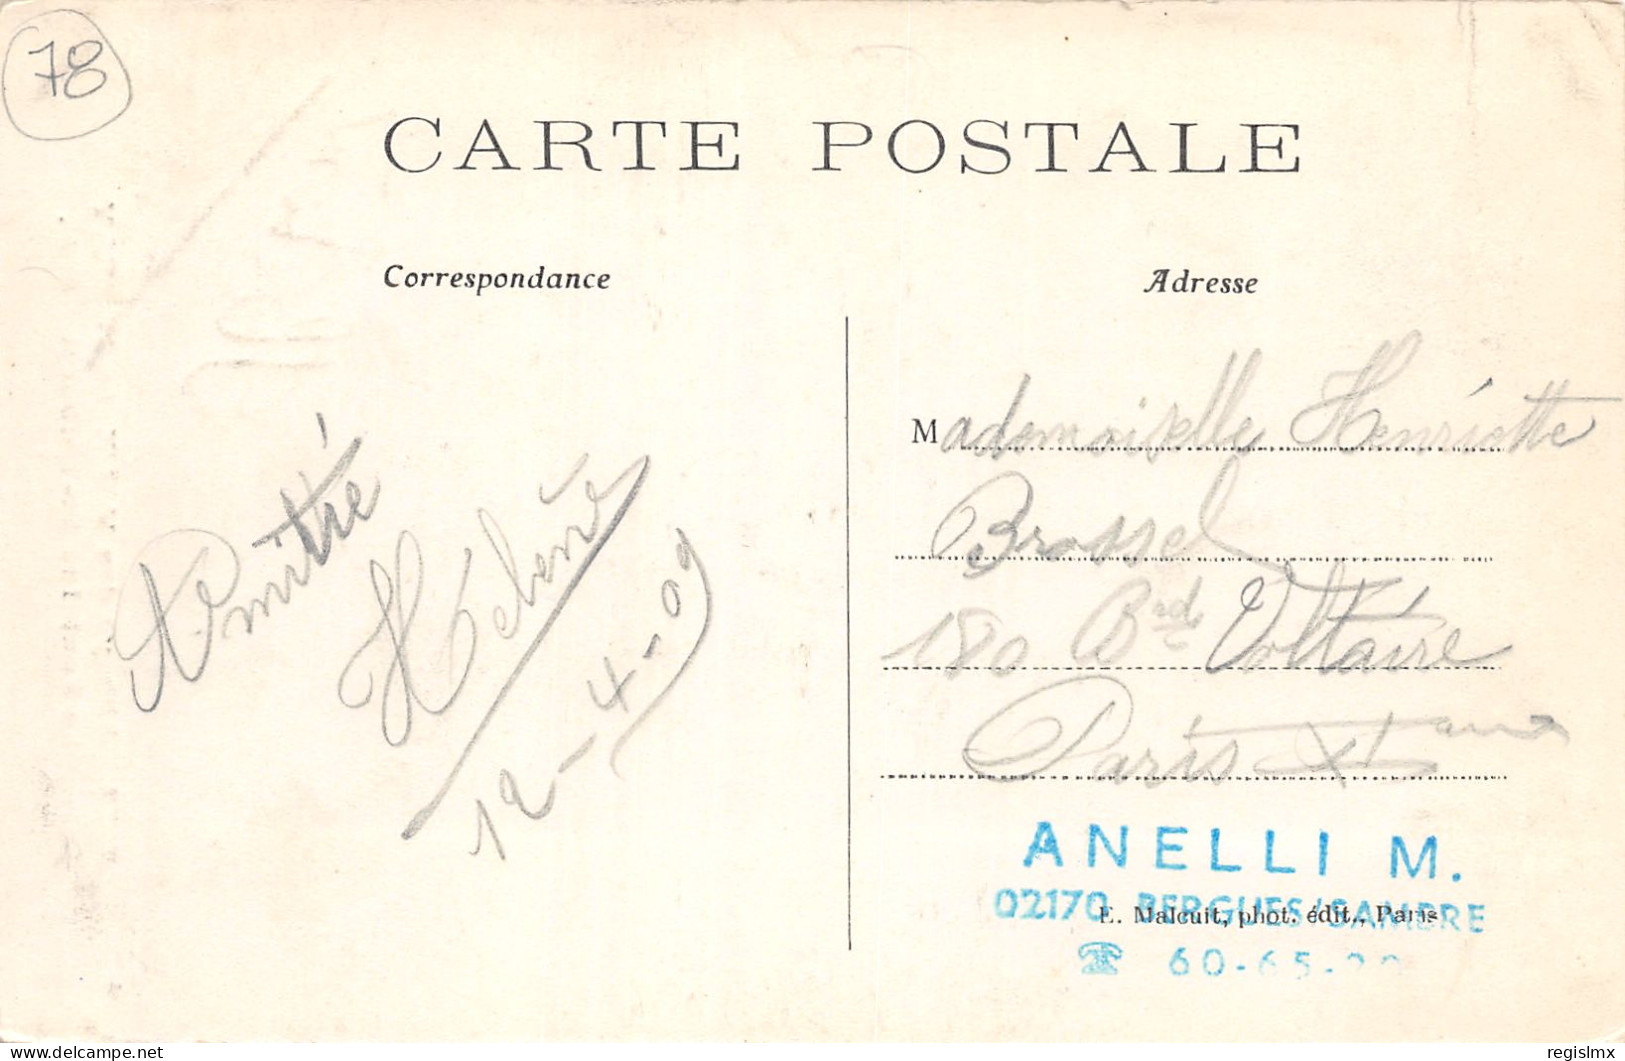 78
CARTE POSTALE
Correspondance
Adresse
Amitié
Hélène
12-4-09
Mademoiselle Henriette
Brossel
180 Bd Voltaire
Paris XI
ANELLI M.
02170 BERGUES/SAMBRE
E. Malcuit, phot. édit., Paris
☎ 60-65-
delcampe.net
regislmx